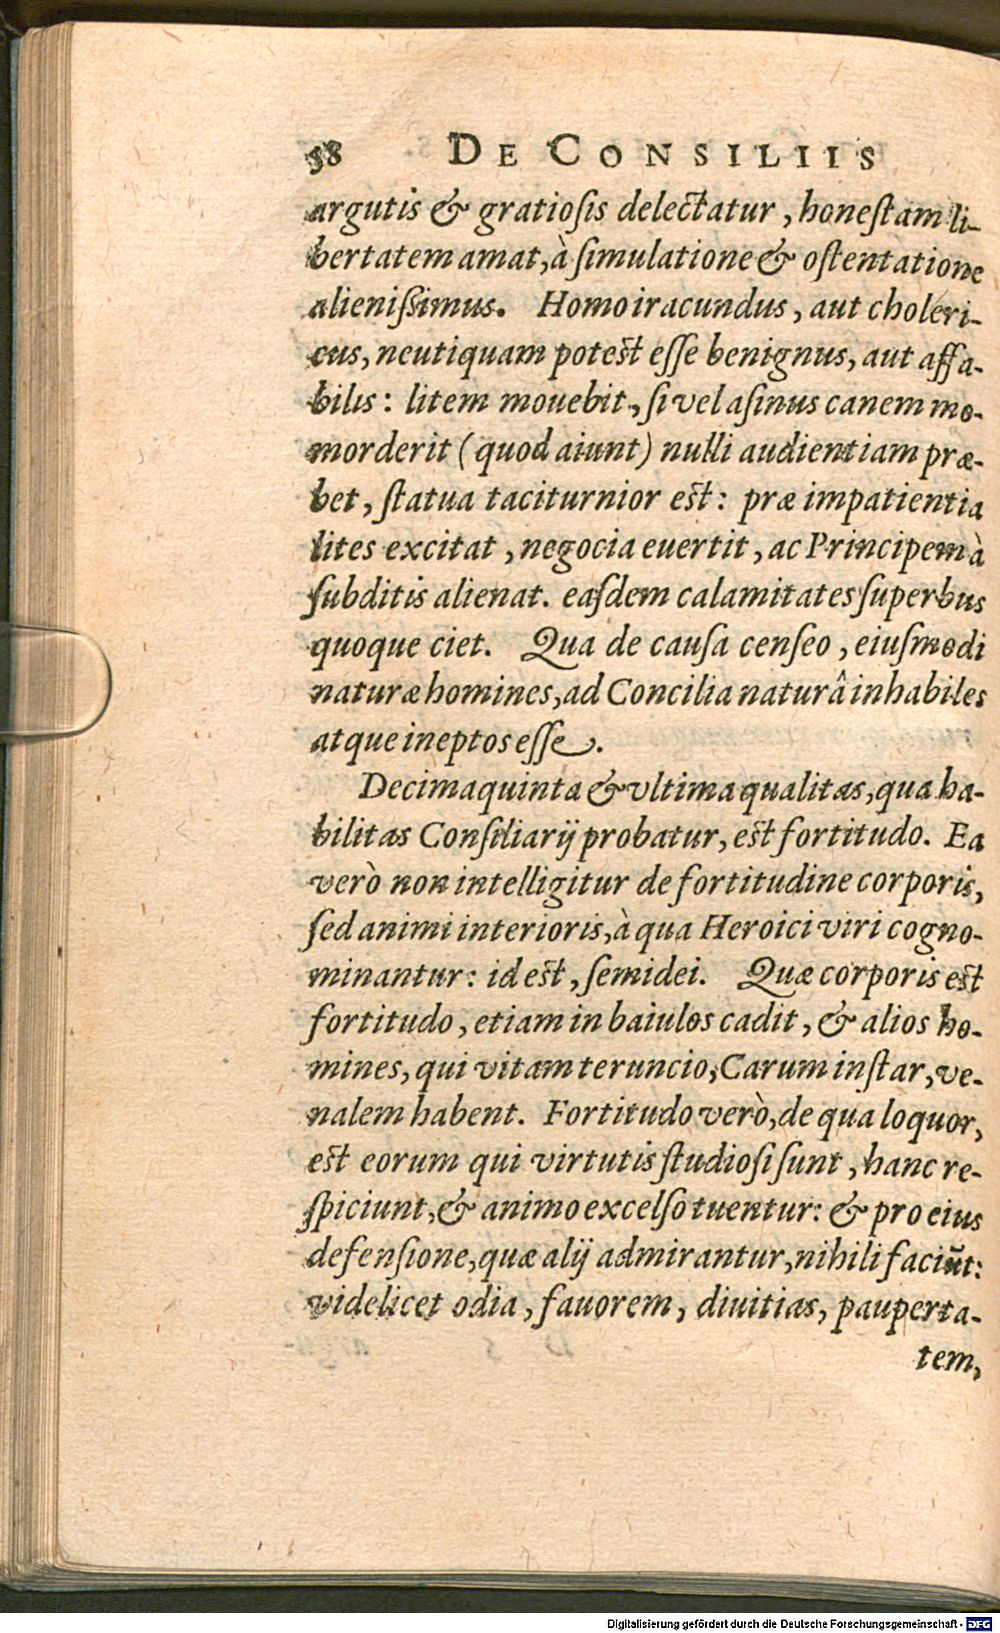 58 DE CONSILIIS
argutis & gratioſis delectatur, honeſtam li-
bertatem amat, à ſimulatione & oſtentatione
alieniſsimus. Homo iracundus, aut choleri-
cus, neutiquam poteſt eſſe benignus, aut affa-
bilis: litem mouebit, ſi vel aſinus canem mo-
morderit (quod aiunt) nulli audientiam præ-
bet, ſtatua taciturnior eſt: præ impatientia
lites excitat, negocia euertit, ac Principem à
ſubditis alienat. eaſdem calamitates ſuperbus
quoque ciet. Qua de cauſa cenſeo, eiuſmodi
naturæ homines, ad Concilia naturâ inhabiles
atque ineptos eſſe.
Decimaquinta & vltima qualitas, qua ha-
bilitas Conſiliarij probatur, eſt fortitudo. Ea
verò non intelligitur de fortitudine corporis,
ſed animi interioris, à qua Heroici viri cogno-
minantur: id eſt, ſemidei. Quæ corporis eſt
fortitudo, etiam in baiulos cadit, & alios ho-
mines, qui vitam teruncio, Carum inſtar, ve-
nalem habent. Fortitudo verò, de qua loquor,
eſt eorum qui virtutis ſtudioſi ſunt, hanc re-
ſpiciunt, & animo excelſo tuentur: & pro eius
defenſione, quæ alij admirantur, nihili faciũt:
videlicet odia, fauorem, diuitias, pauperta-
tem,
Digitalisierung gefördert durch die Deutsche Forschungsgemeinschaft - DFG